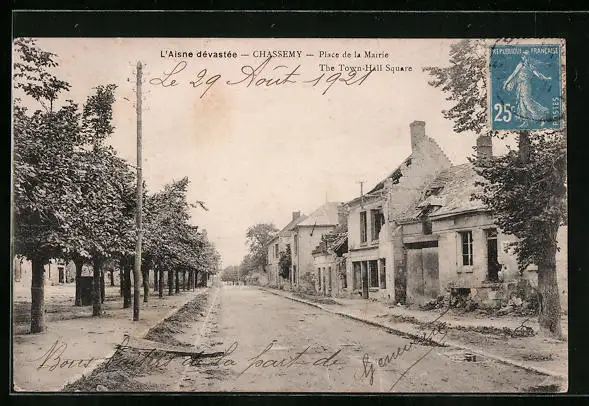 L'Aisne dévastée — CHASSEMY — Place de la Mairie
The Town-Hall Square
Le 29 Août 1921
REPUBLIQUE FRANÇAISE
25c
POSTES
de la part de
Geneviève